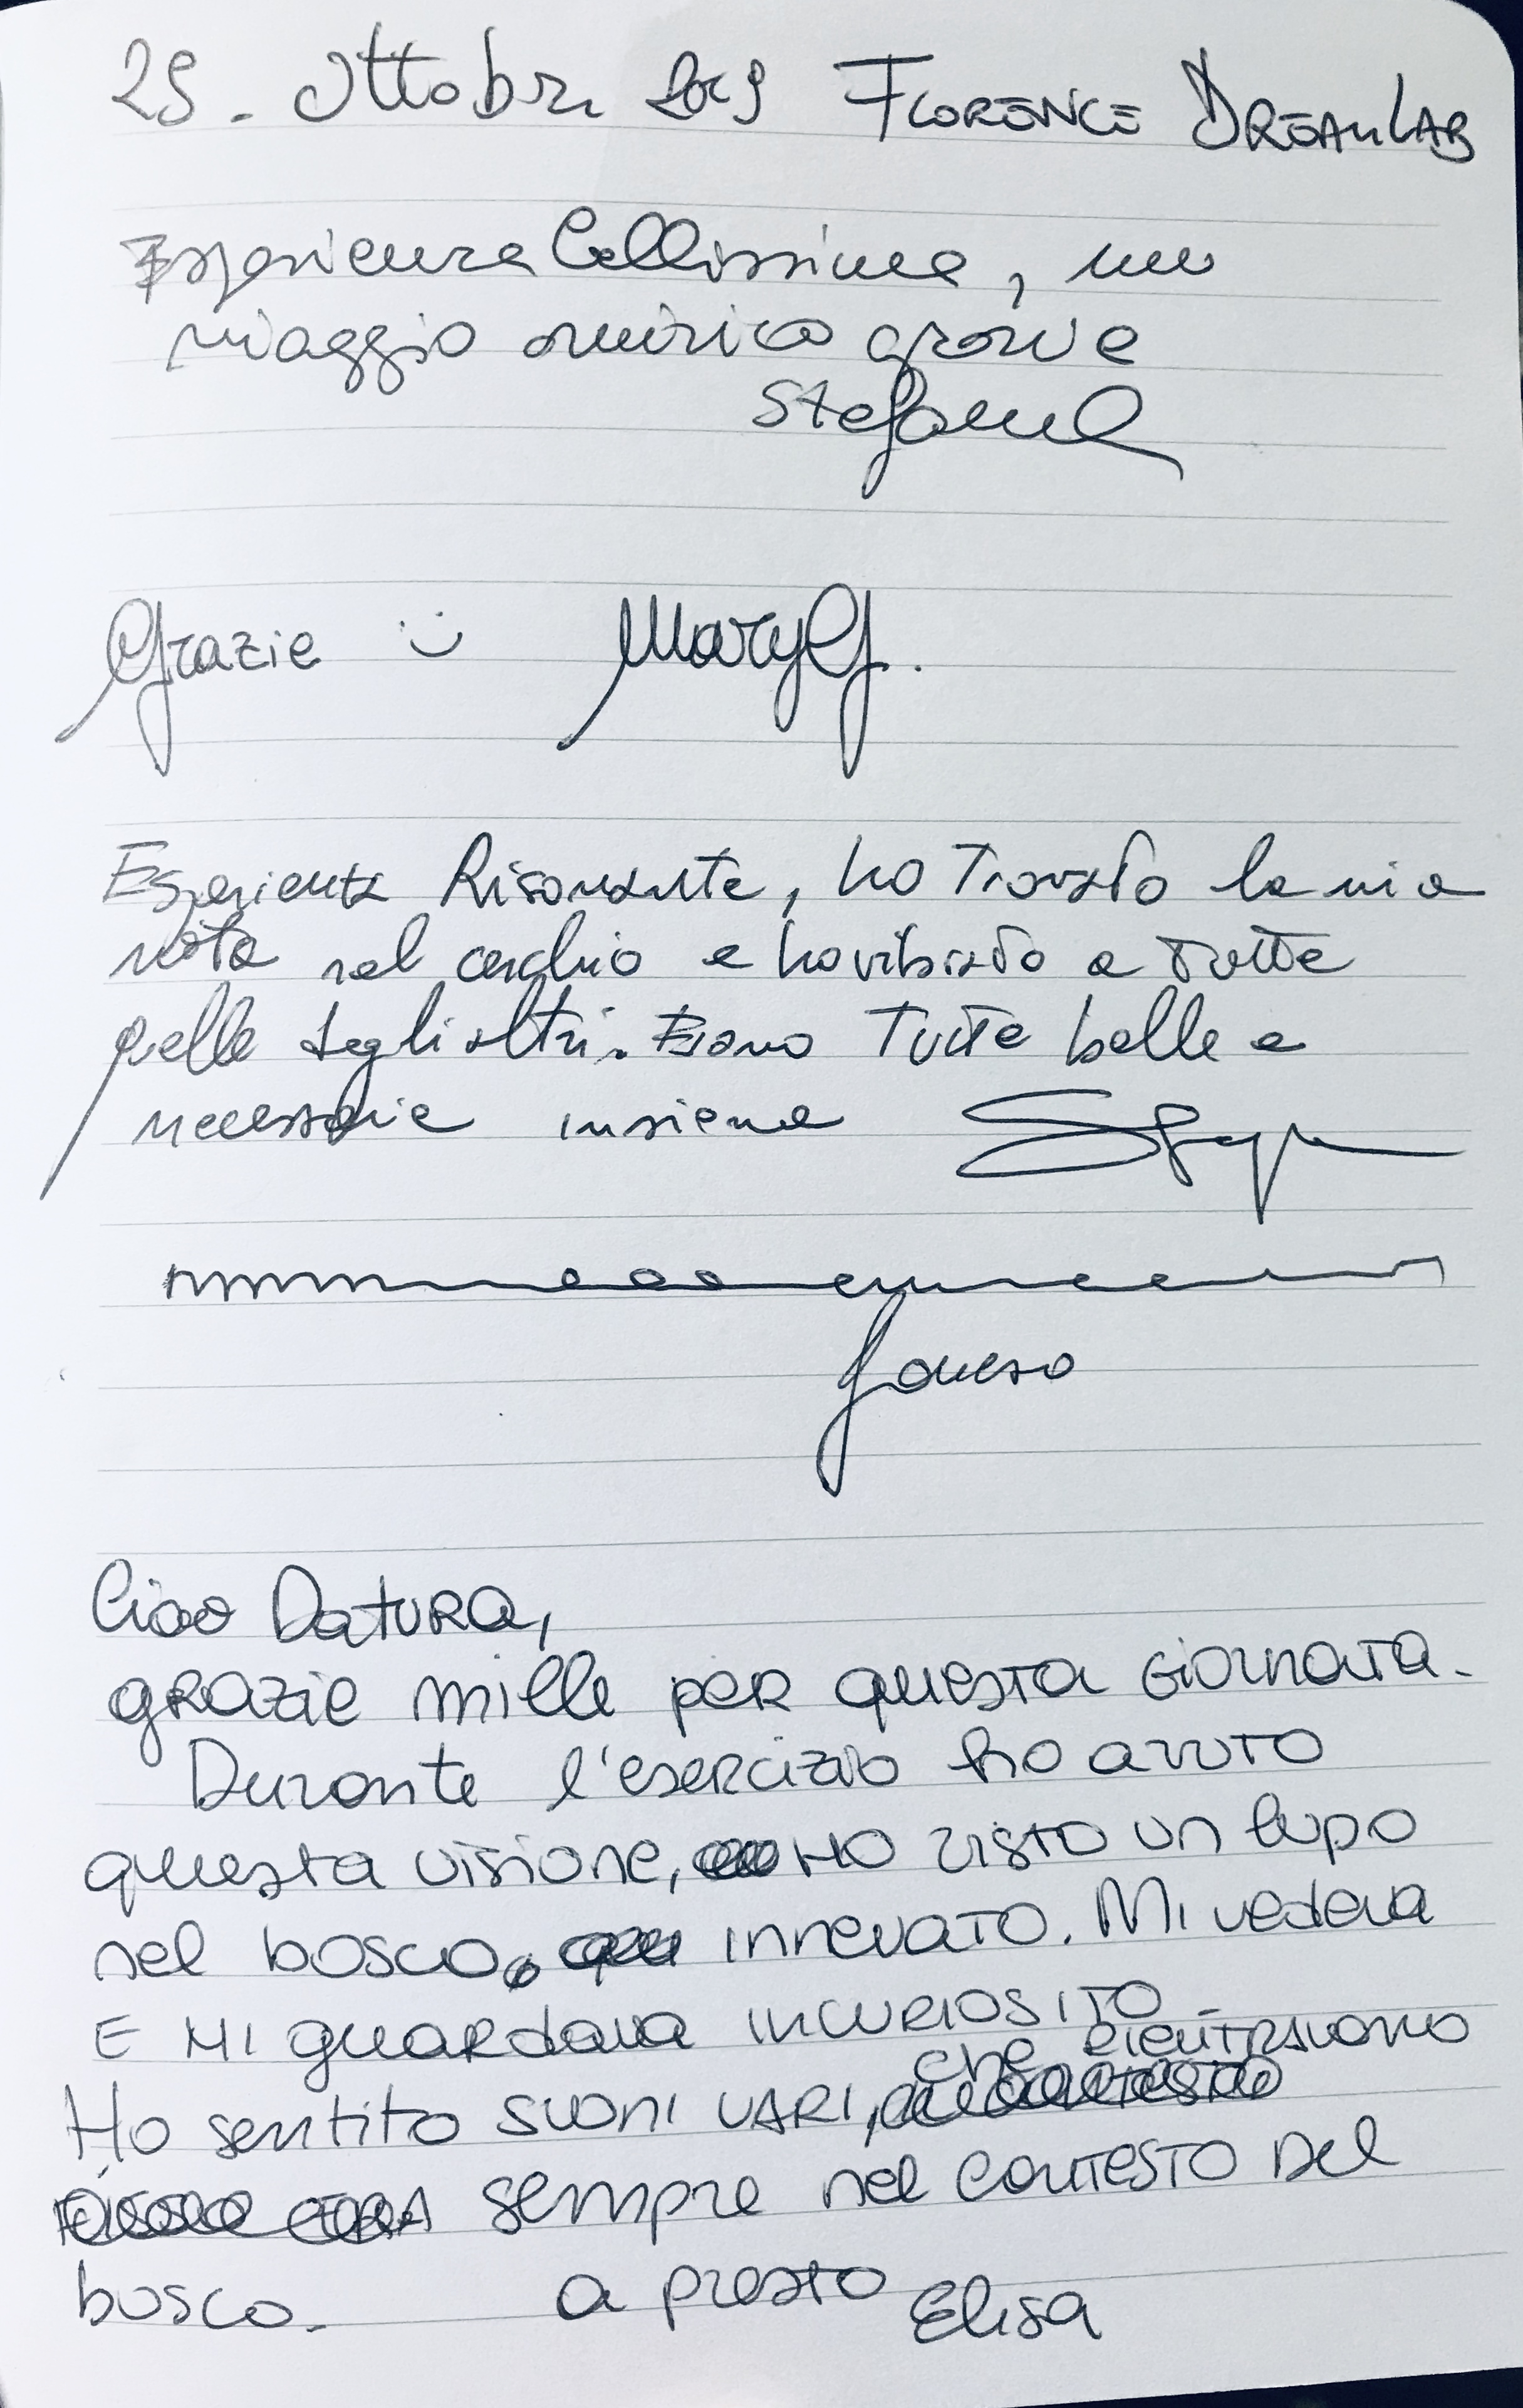 25. Ottobre 2019 FLORENCE DREAMLAB
Esperienza bellissima, un
viaggio onirico grande
Stefania
Grazie :) MaryG.
Esperienza Risonante, ho Trovato la mia
nota nel cerchio e ho vibrato a Tutte
quelle degli altri. Erano Tutte belle e
necessarie insieme
Ciao DATURA,
grazie mille per questa GIORNATA.
Durante l'esercizio ho avuto
questa visione, HO VISTO un lupo
nel bosco innevato. Mi vedeva
E MI guardava INCURIOSITO.
che RIENTRAVANO
Ho sentito suoni VARI,
sempre nel CONTESTO Del
bosco. a presto Elisa